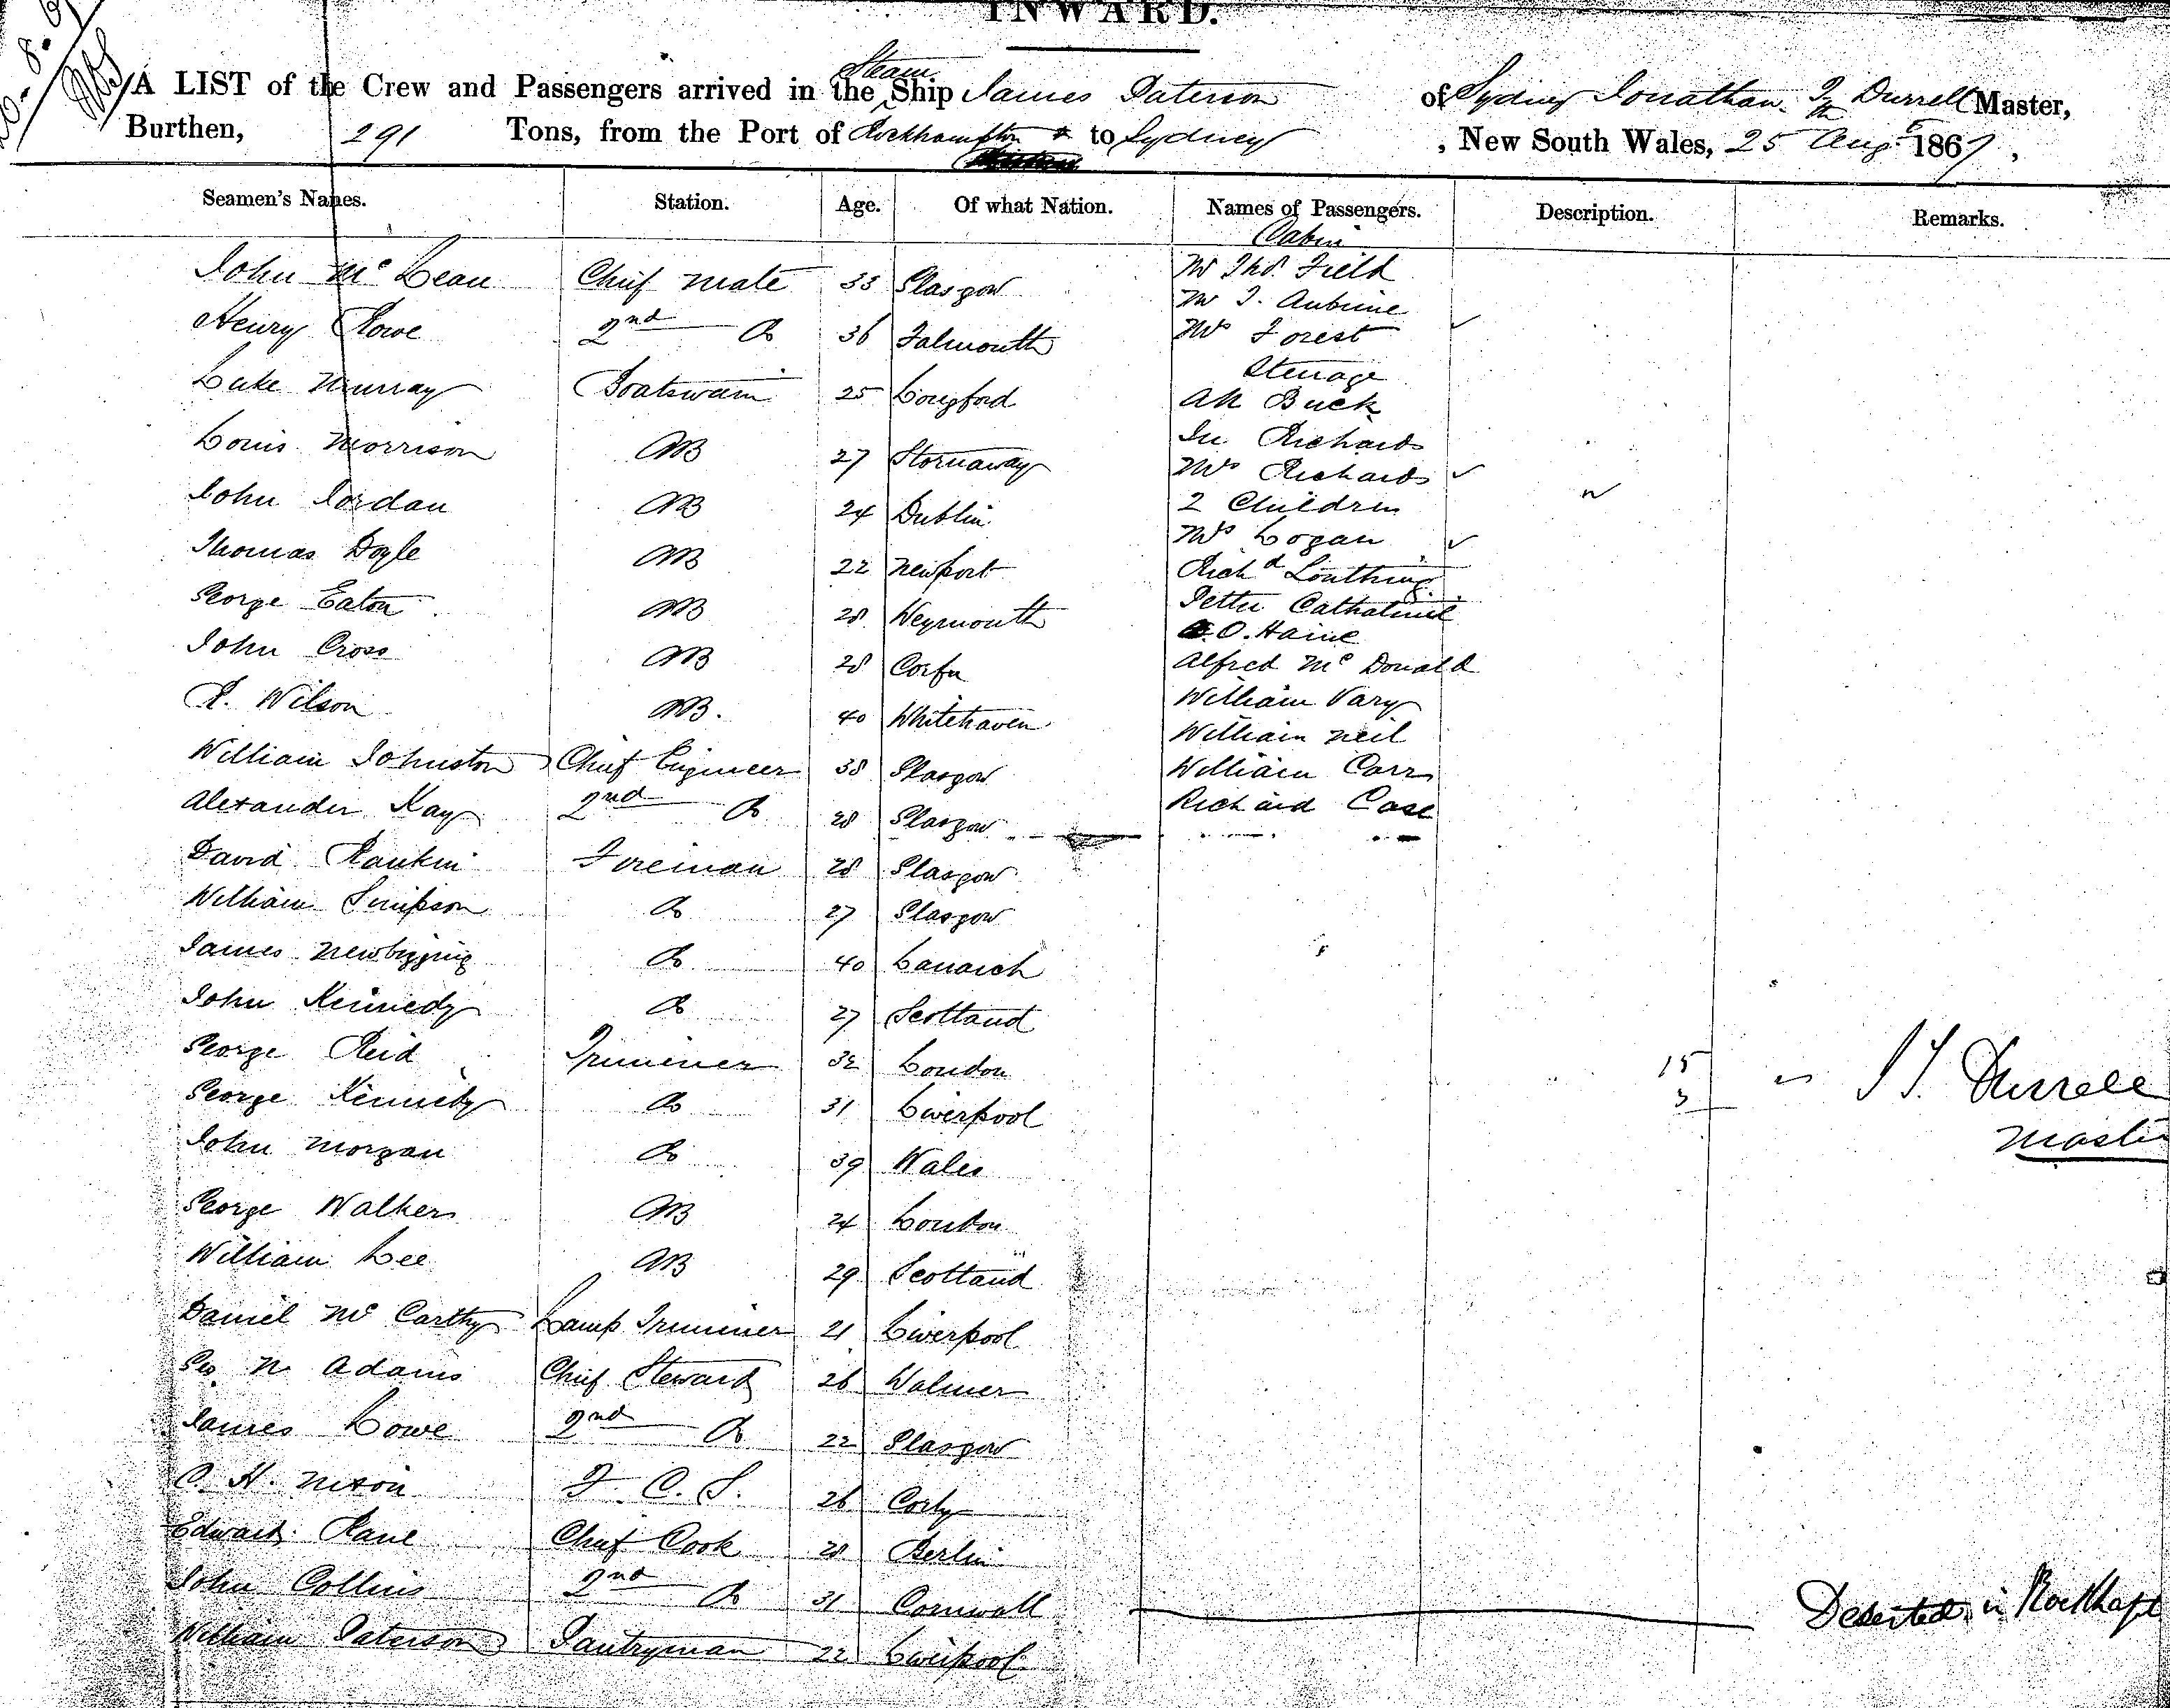 INWARD.
A LIST of the Crew and Passengers arrived in the Steam Ship James Paterson of Sydney Jonathan T Durrell Master,
Burthen, 291 Tons, from the Port of Rockhampton to Sydney, New South Wales, 25 Augt 1867,
Seamen's Names. Station. Age. Of what Nation. Names of Passengers. Description. Remarks.
Cabin
John Mc Lean Chief Mate 33 Glasgow Mr Thos. Field
Mr J. Aubine
Henry Rowe 2nd Do 36 Falmouth Mrs Forest
Steerage
Luke Murray Boatswain 25 Longford Ah Buck
Louis Morrison AB 27 Stornaway Jn Richards
Mrs Richards
John Jordan AB 24 Dublin 2 Children
Mrs Logan
Thomas Doyle AB 22 Newport Richd Louthing
George Eaton AB 28 Weymouth Petter
O. Haine
John Cross AB 28 Corfu Alfred Mc Donald
R. Wilson AB. 40 Whitehaven William Vary
William Neil
William Johnston Chief Engineer 38 Glasgow William Carr
Alexander Kay 2nd Do 28 Glasgow Richard Case
David Rankin Fireman 28 Glasgow
William Simpson Do 27 Glasgow
James Newbigging Do 40 Lanarch
John Kennedy Do 27 Scotland
George Reid Trimmer 32 London 15 J T. Durrell
George Kennedy Do 31 Liverpool 3
Master
John Morgan Do 39 Wales
George Walker AB 24 London
William Lee AB 29 Scotland
Daniel Mc Carthy Lamp Trimmer 21 Liverpool
Geo. N Adams Chief Steward 26 Walmer
James Lowe 2nd Do 22 Glasgow
C. H. Nixon F. C. S. 26 Corby
Edward Rane Chief Cook 28 Berlin
John Collins 2nd Do 31 Cornwall Deserted in Rockhapt
William Paterson Pantryman 22 Liverpool